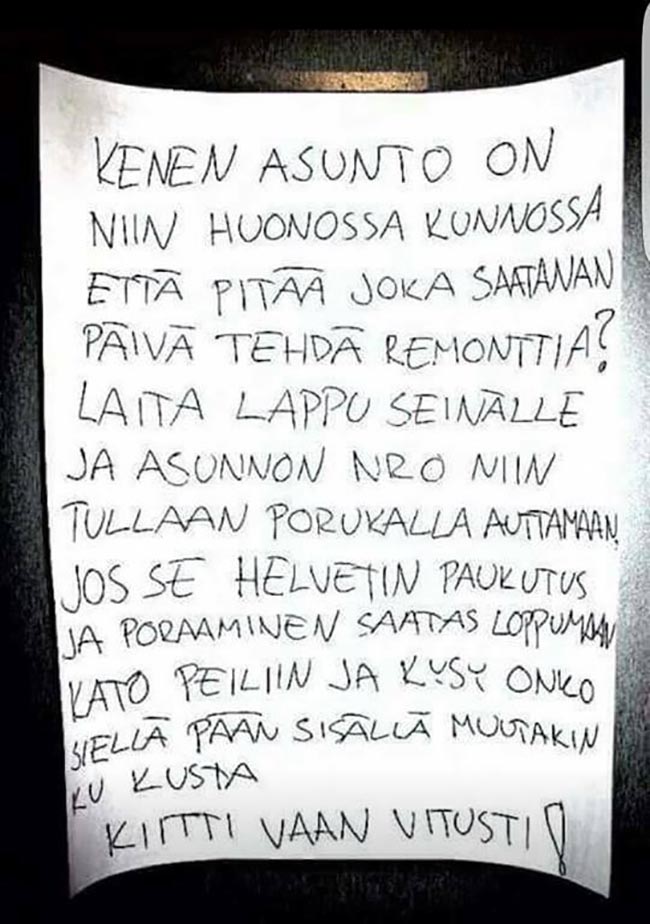 KENEN ASUNTO ON
NIIN HUONOSSA KUNNOSSA
ETTÄ PITÄÄ JOKA SAATANAN
PÄIVÄ TEHDÄ REMONTTIA?
LAITA LAPPU SEINÄLLE
JA ASUNNON NRO NIIN
TULLAAN PORUKALLA AUTTAMAAN,
JOS SE HELVETIN PAUKUTUS
JA PORAAMINEN SAATAS LOPPUMAAN
KATO PEILIIN JA KYSY ONKO
SIELLÄ PÄÄN SISÄLLÄ MUUTAKIN
KU KUSTA
KIITTI VAAN VITUSTI!